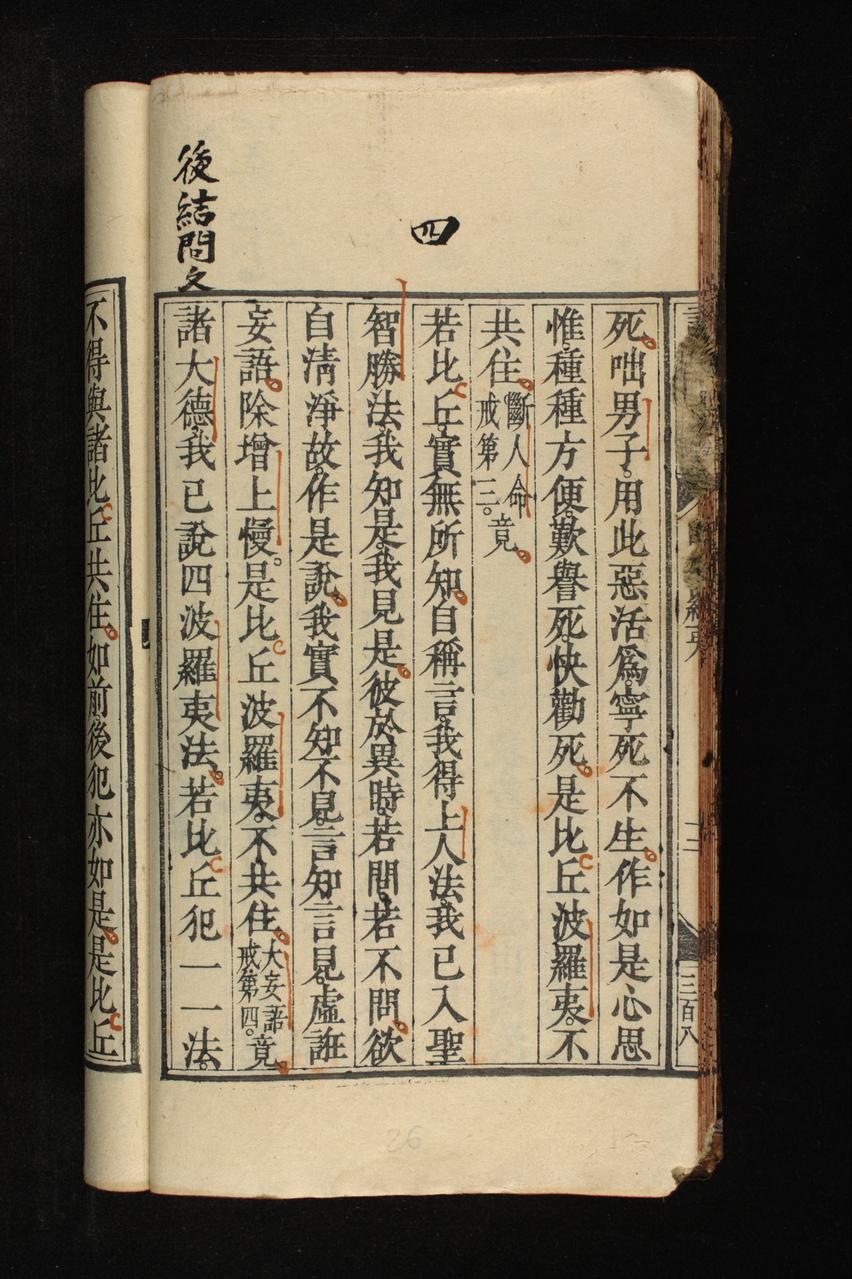 四
後結問文
死。咄男子。用此惡活爲。寧死不生。作如是心思
惟。種種方便。歎譽死。快勸死。是比丘波羅夷。不
共住。斷人命戒第三。竟。
若比丘。實無所知。自稱言。我得上人法。我已入聖
智勝法。我知是。我見是。彼於異時。若問。若不問。欲
自淸淨故。作是說。我實不知不見。言知言見。虛誑
妄語。除增上慢。是比丘波羅夷。不共住。大妄語戒第四。竟。
諸大德。我已說四波羅夷法。若比丘犯一一法。
不得與諸比丘共住。如前。後犯亦如是。是比丘
三
三百八
26